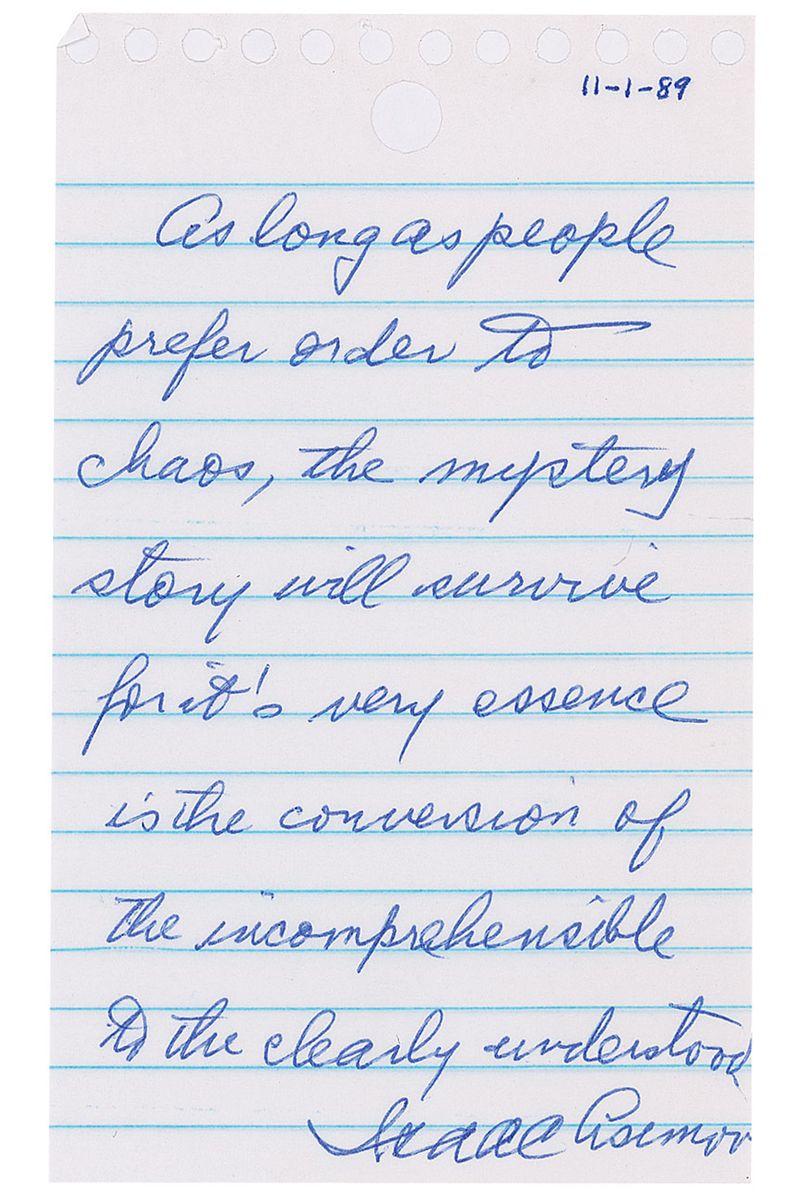 11-1-89
As long as people
prefer order to
chaos, the mystery
story will survive
for it's very essence
is the conversion of
the incomprehensible
to the clearly understood
Isaac Asimov